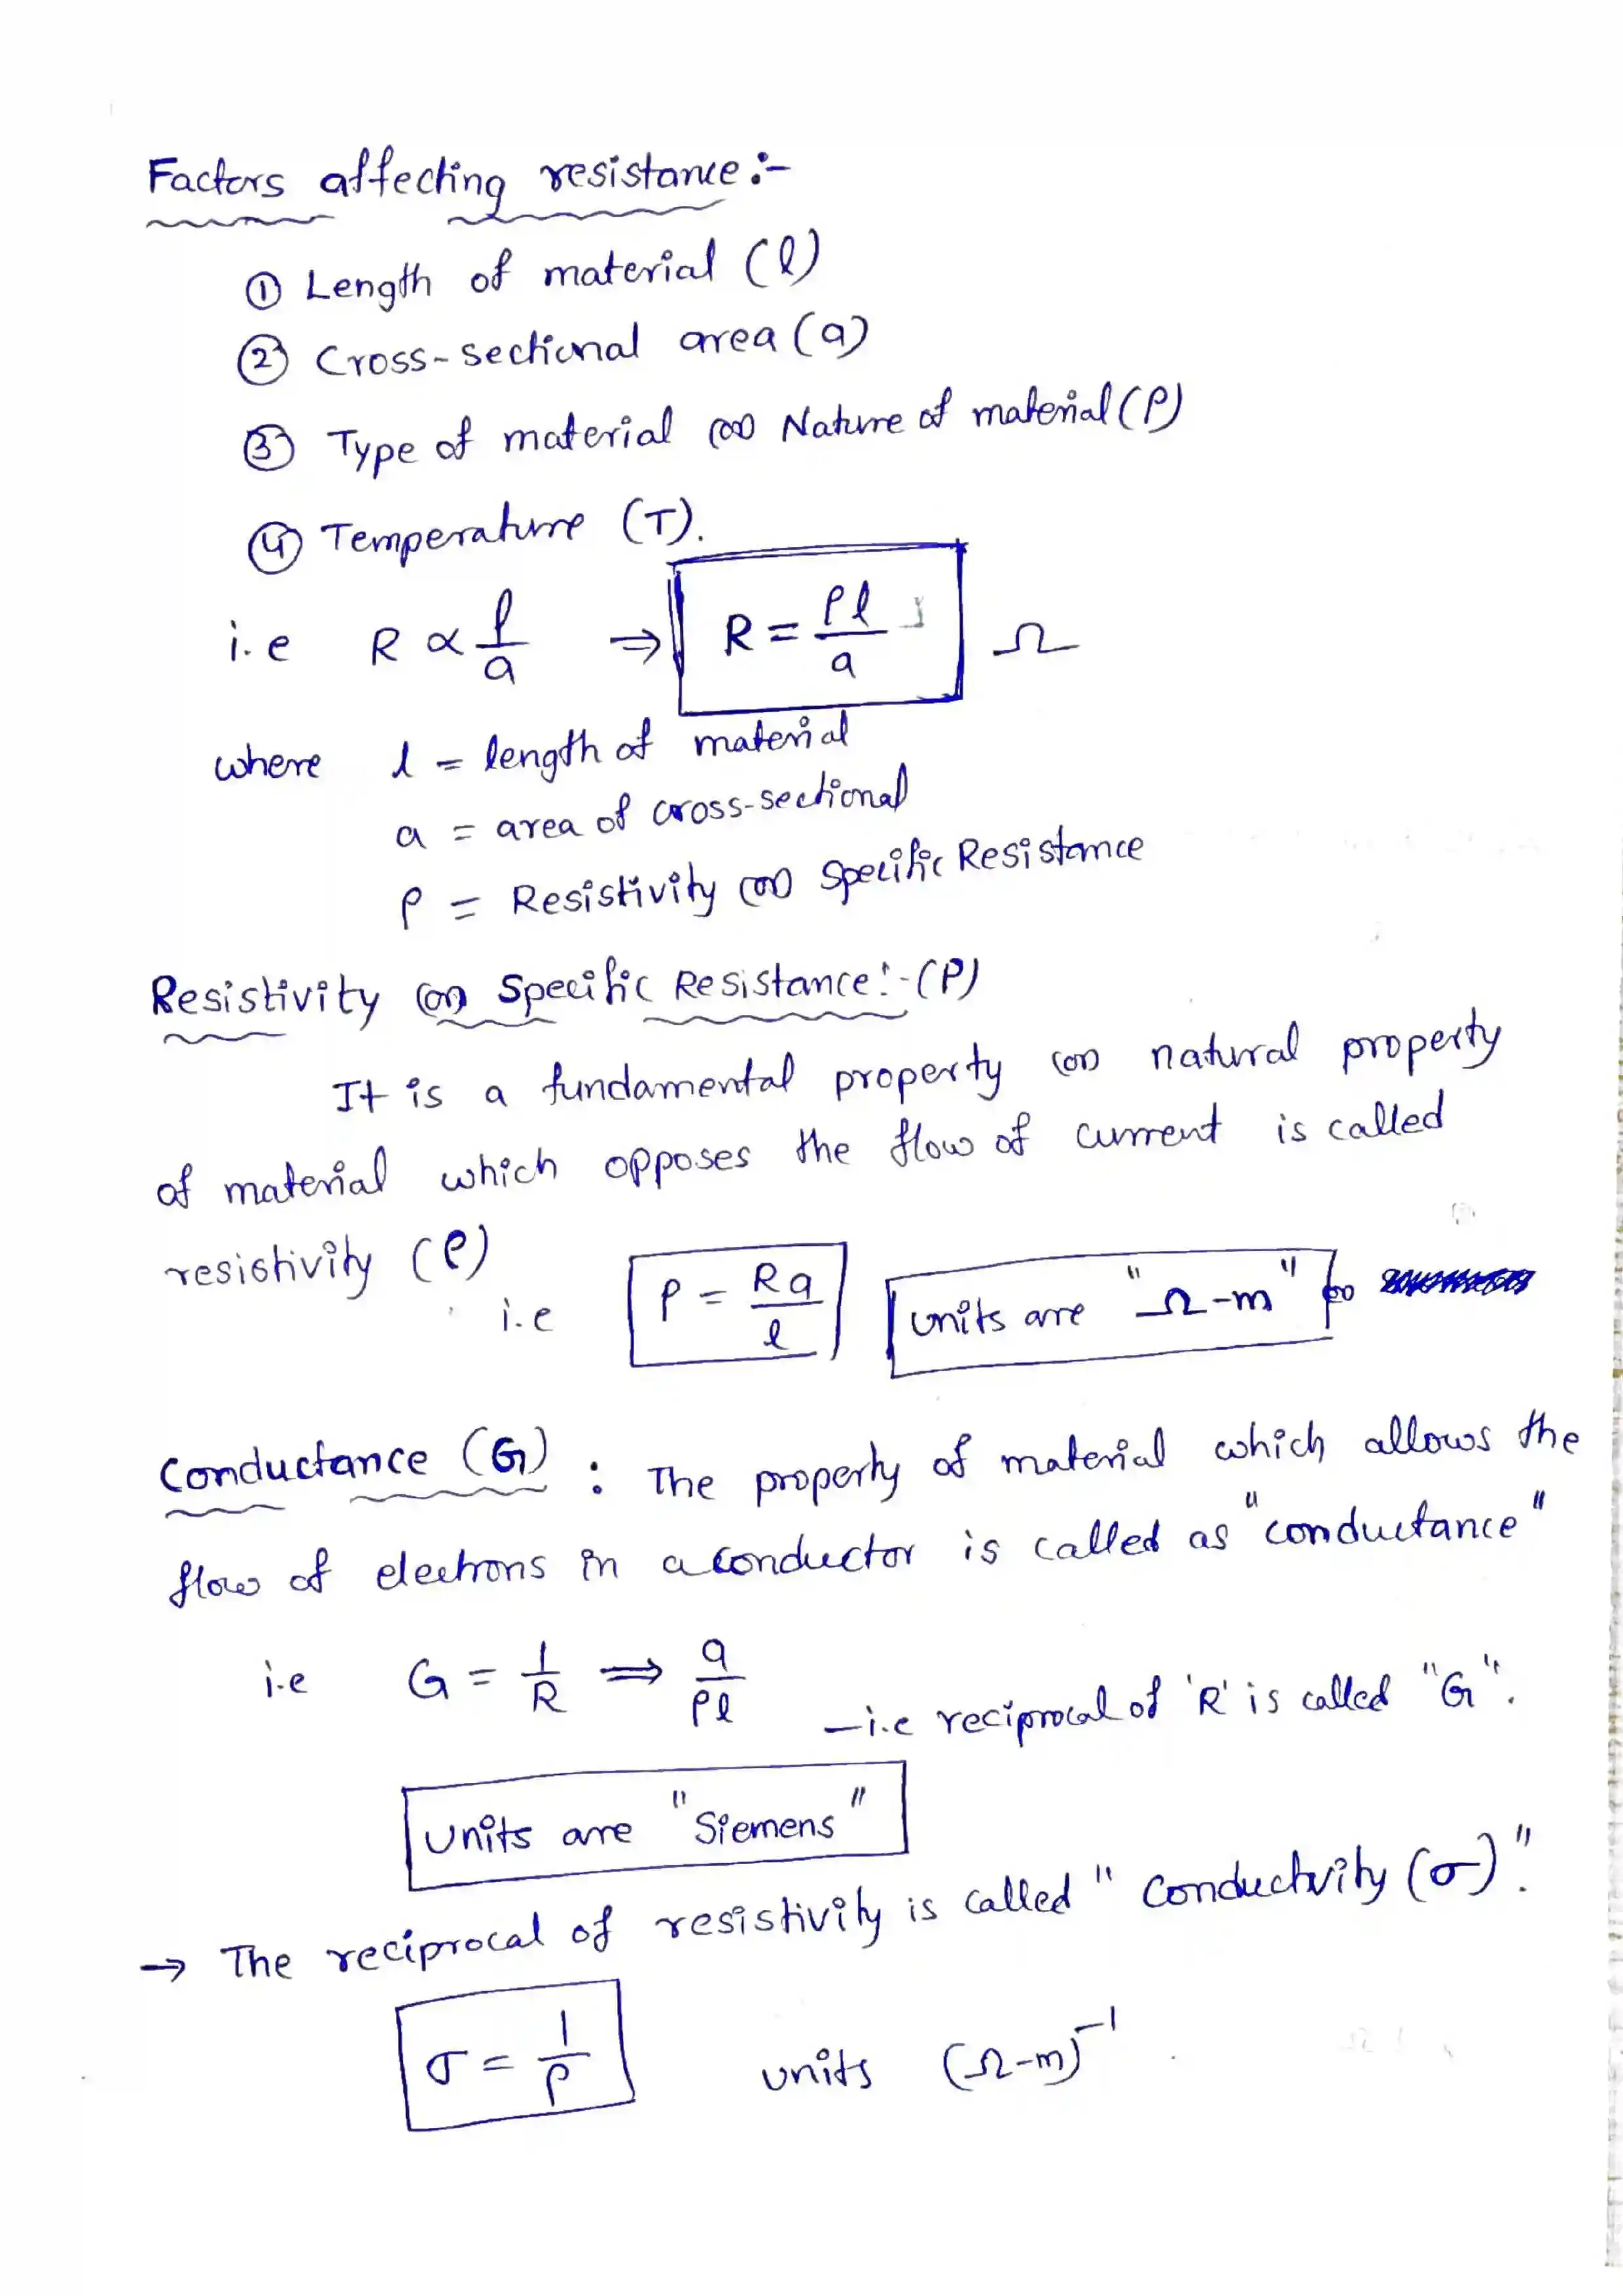 Factors affecting resistance :-
① Length of material (l)
② Cross-sectional area (a)
③ Type of material (or) Nature of material (ρ)
④ Temperature (T).
i.e R ∝ l/a ⇒ R = ρl/a Ω
where l = length of material
a = area of cross-sectional
ρ = Resistivity (or) Specific Resistance
Resistivity (or) Specific Resistance :- (ρ)
It is a fundamental property (or) natural property
of material which opposes the flow of current is called
resistivity (ρ)
i.e ρ = Ra/l units are "Ω-m"
Conductance (G) : The property of material which allows the
flow of electrons in a conductor is called as "conductance"
i.e G = 1/R ⇒ a/ρl
– i.e reciprocal of 'R' is called "G".
units are "Siemens"
→ The reciprocal of resistivity is called "Conductvity (σ)".
σ = 1/ρ units (Ω-m)⁻¹